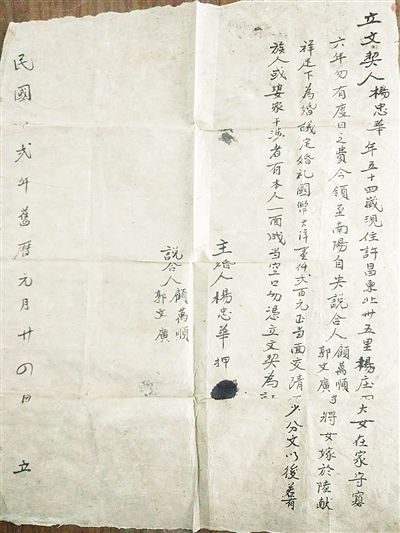 立文契人楊忠華年五十四歲現住許昌東北卅五里楊庄大女在家守寡
六年勿有度日之費今領至南陽自央説合人顧萬順
郭文廣
將女嫁於陸献
祥足下為婚議定婚礼國幣大洋壹仟弍百元正当面交清不少分文以後若有
族人或娶家干涉者有本人一面成当空口勿凴立文契為証
主婚人楊忠華押
説合人顧萬順
郭文廣
民國弍年舊曆元月廿四日 立